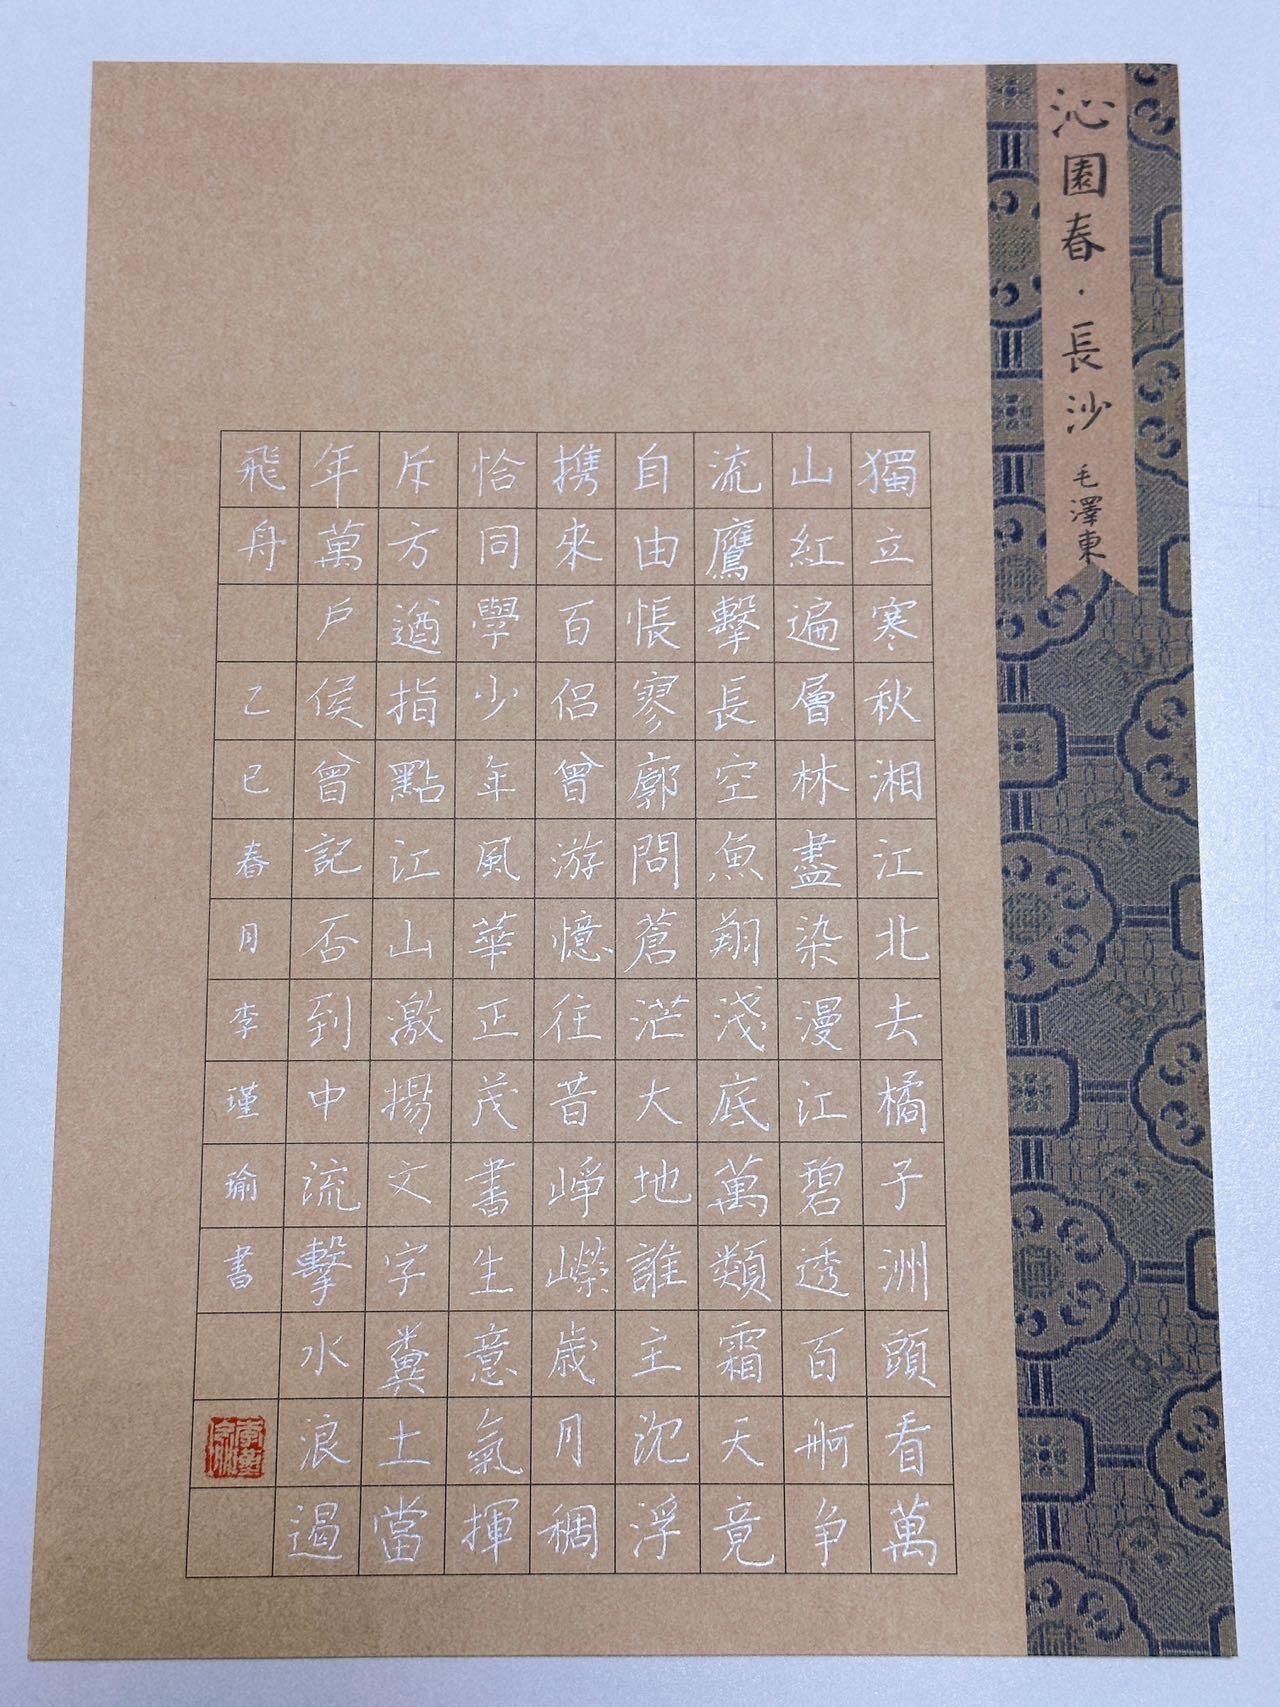 沁園春·長沙 毛澤東
獨立寒秋湘江北去橘子洲頭看萬
山紅遍層林盡染漫江碧透百舸争
流鷹擊長空魚翔淺底萬類霜天竟
自由悵寥廓問蒼茫大地誰主沈浮
携來百侣曾游憶往昔崢嶸歲月稠
恰同學少年風華正茂書生意氣揮
斥方遒指點江山激揚文字糞土當
年萬戶侯曾記否到中流擊水浪遏
飛舟 乙巳春月李瑾瑜書